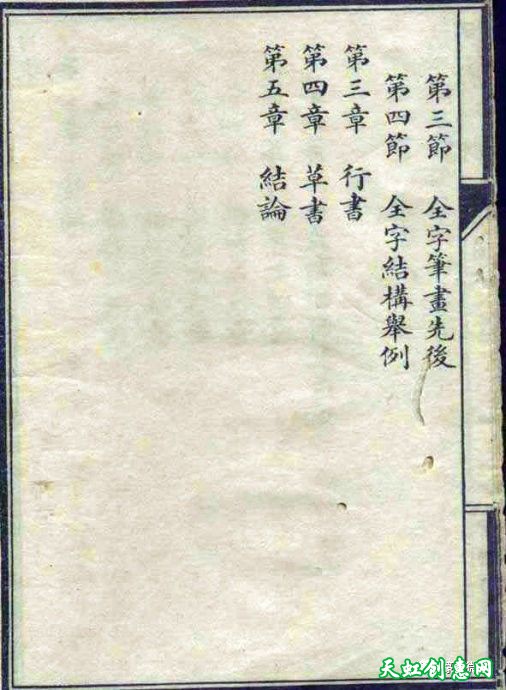 第三節　全字筆畫先後
第四節　全字結構舉例
第三章　行書
第四章　草書
第五章　結論
天虹创意网